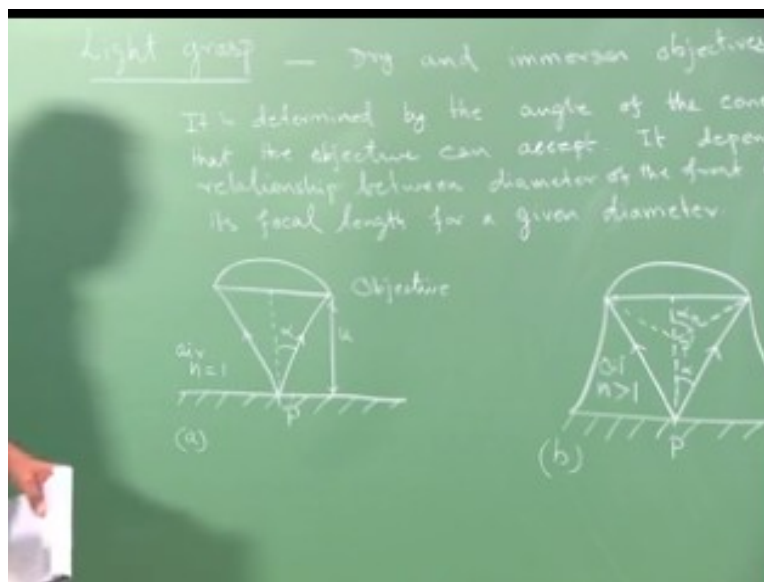 Light grasp — Dry and immersion objectives
It is determined by the angle of the cone
that the objective can accept. It depen
relationship between diameter of the front
its focal length for a given diameter.
Objective
α
u
air
n=1
P
(a)
α
oil
n>1
α
P
(b)